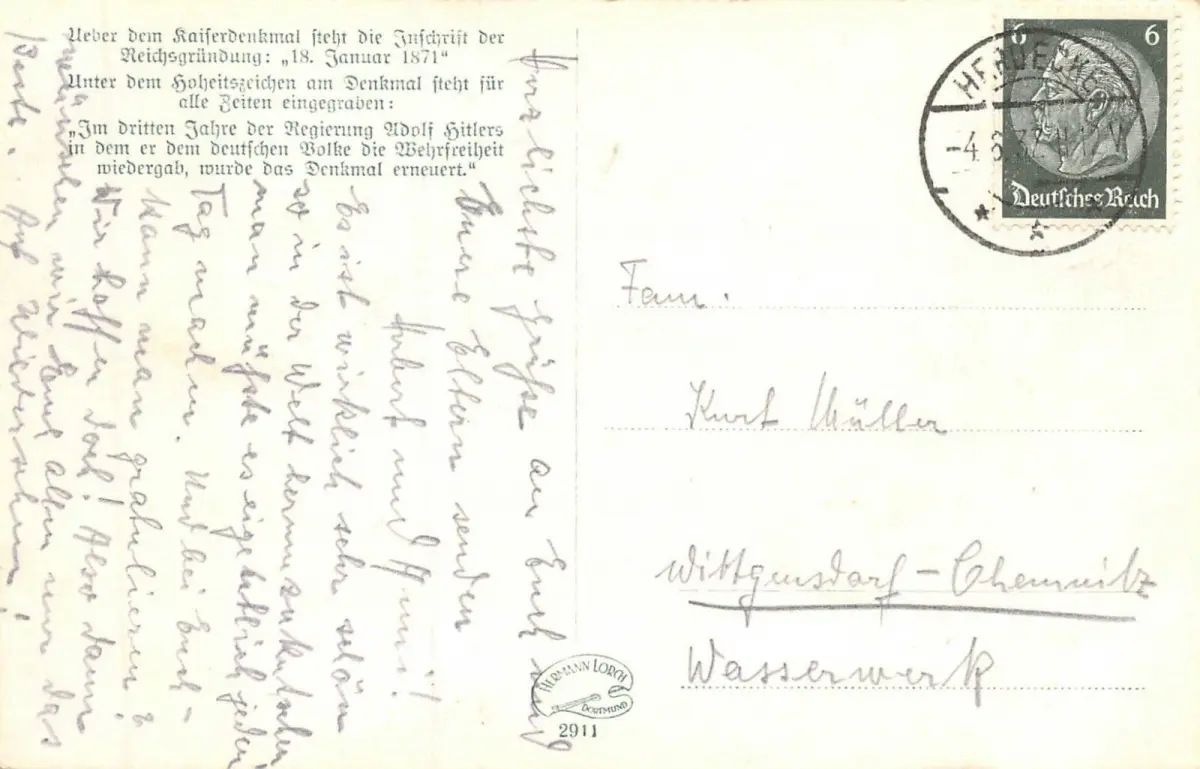 Ueber dem Kaiserdenkmal steht die Inschrift der
Reichsgründung: „18. Januar 1871“
Unter dem Hoheitszeichen am Denkmal steht für
alle Zeiten eingegraben:
„Im dritten Jahre der Regierung Adolf Hitlers
in dem er dem deutschen Volke die Wehrfreiheit
wiedergab, wurde das Denkmal erneuert.“
Herzlichste Grüße an Euch und
Euere Eltern senden
Hubert und Anni!
Es ist wirklich sehr schön
so in der Welt herumzukutschen
man müßte es eigentlich jeden
Tag machen. Und bei Euch –
kann man gratulieren?
Wir hoffen doch! Also dann
wünschen wir Euch allen nur das
Beste. Auf Wiedersehen!
HERMANN LORCH
DORTMUND
2911
6 6
Deutsches Reich
HERDECKE
Fam.
Kurt Müller
Wittgensdorf – Chemnitz
Wasserwerk